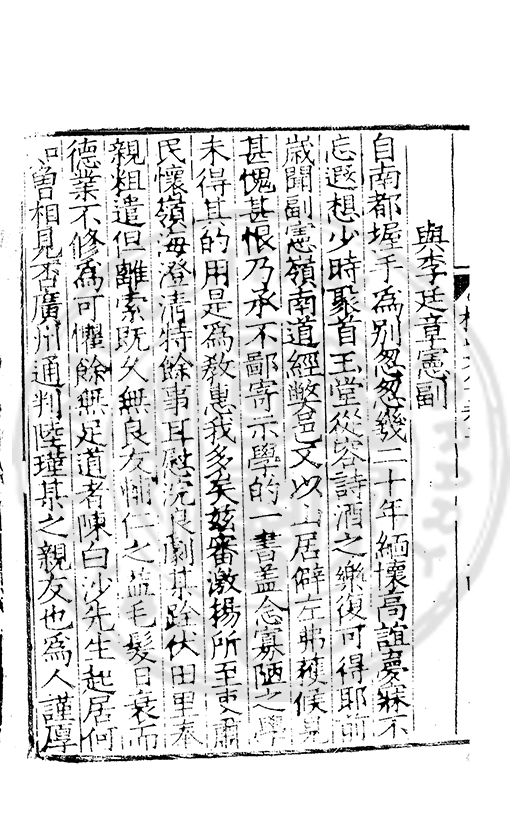 與李廷章憲副
自南都握手為別忽忽幾二十年緬懷高誼夢寐不
忘遐想少時聚首玉堂從容詩酒之樂復可得耶前
歲聞副憲嶺南道經敝邑又以山居僻左弗獲候見
甚愧甚恨乃承不鄙寄示學的一書盖念寡陋之學
未得其的用是為教惠我多矣玆審激揚所至吏肅
民懷嶺海澄清特餘事耳慰沉良劇某跧伏田里奉
親粗遣但離索既久無良友輔仁之益毛髮日衰而
德業不修為可懼餘無足道者陳白沙先生起居何
如曽相見否廣州通判陸瑾某之親友也為人謹厚